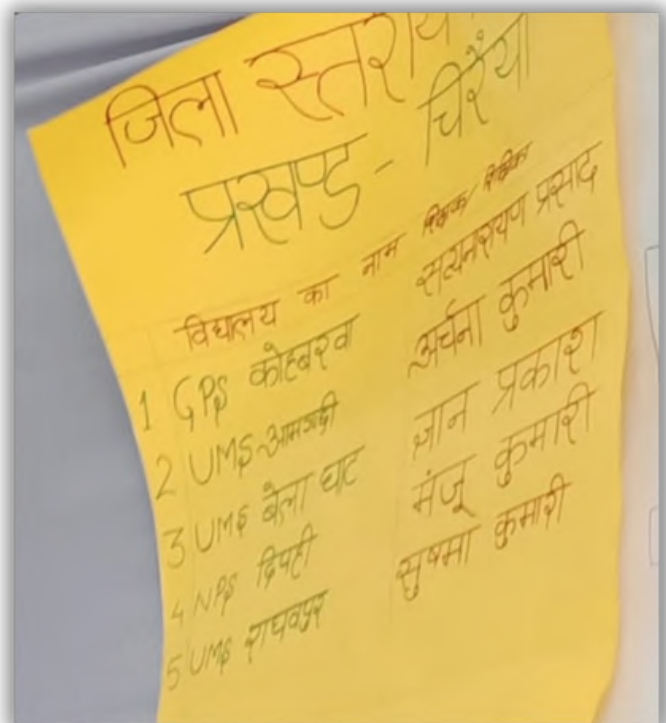 जिला स्तरीय
प्रखण्ड - चिरैया
विद्यालय का नाम शिक्षक/शिक्षिका
1 GPS कोहबरवा सत्यनारायण प्रसाद
2 UMS अर्चना कुमारी
3 UMS बेला घाट ज्ञान प्रकाश
4 NPS दिपही मंजू कुमारी
5 UMS राघवपुर सुषमा कुमारी